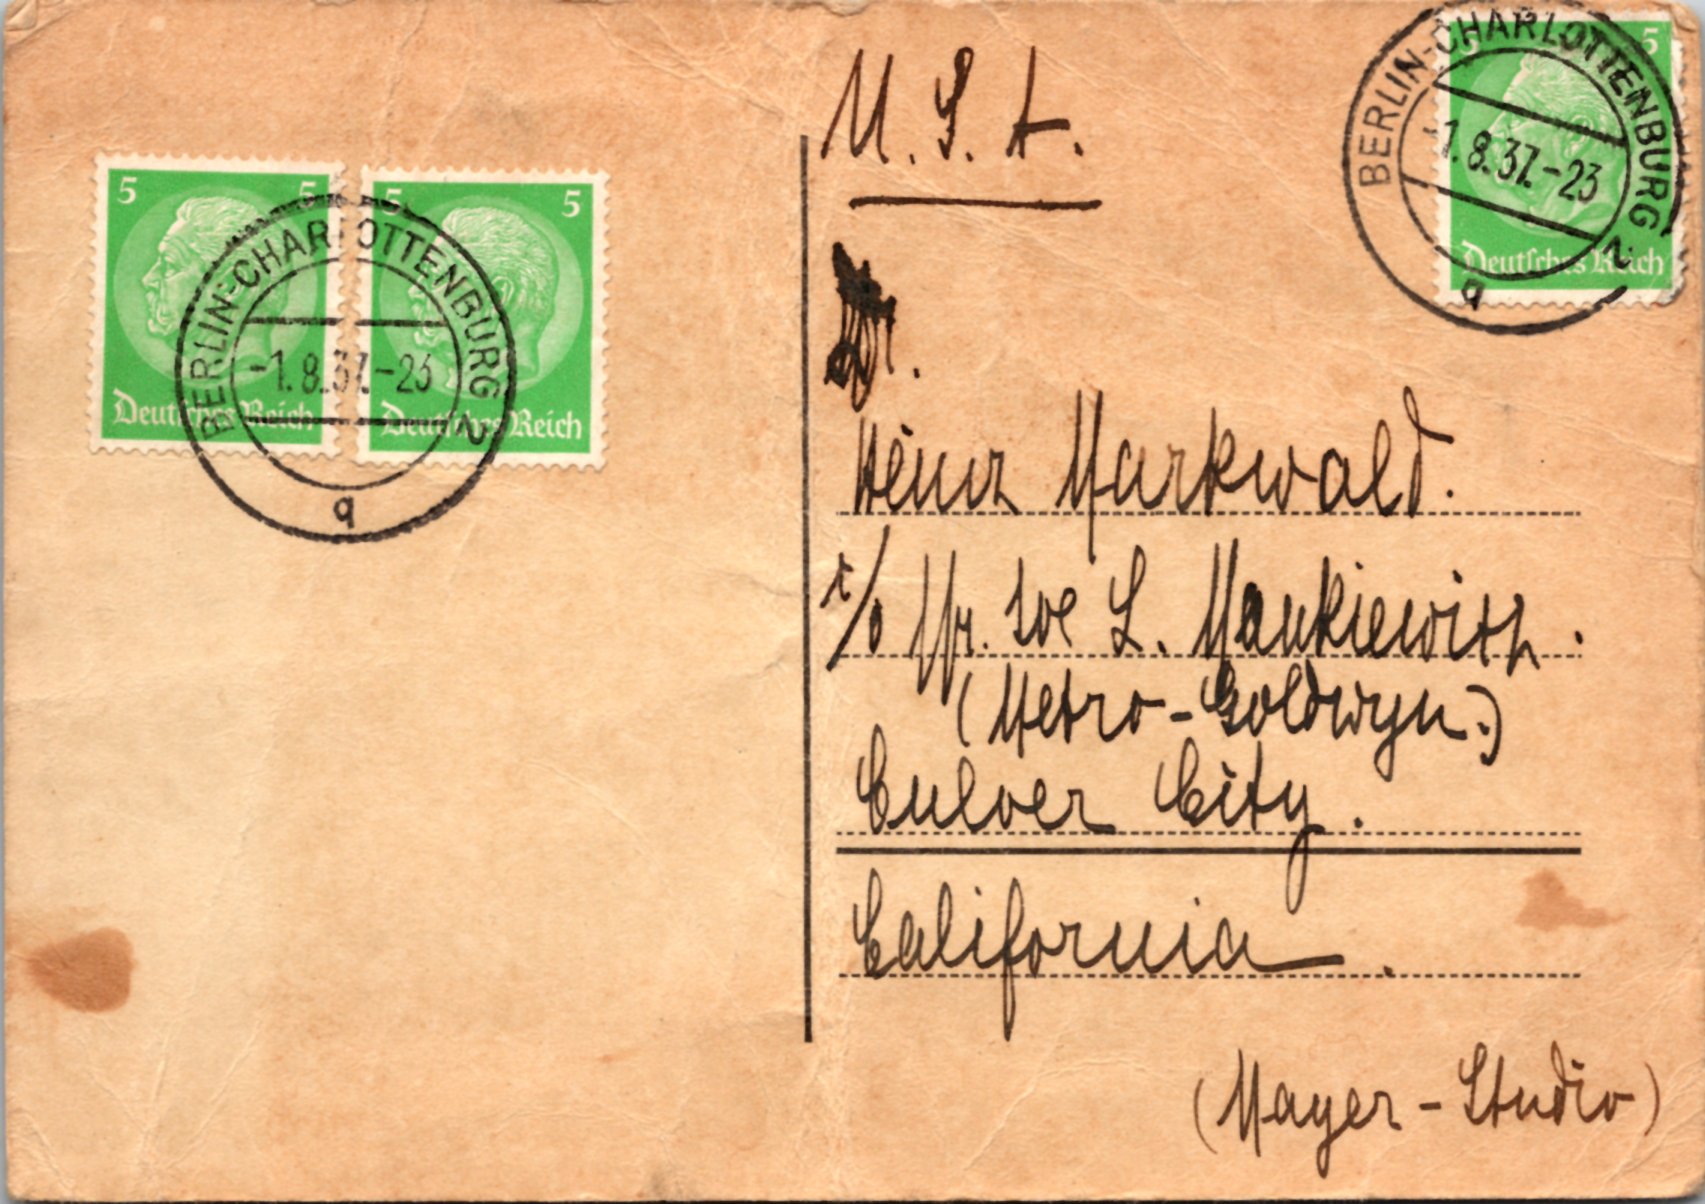 5 5
Deutsches Reich
5 5
Deutsches Reich
BERLIN-CHARLOTTENBURG 2
-1.8.37.-23
q
5 5
Deutsches Reich
BERLIN-CHARLOTTENBURG 2
-1.8.37.-23
q
U.S.A.
Heinz Markwald.
c/o Mr. Joe L. Mankiewitz.
(Metro-Goldwyn.)
Culver City.
California.
(Mayer-Studio)